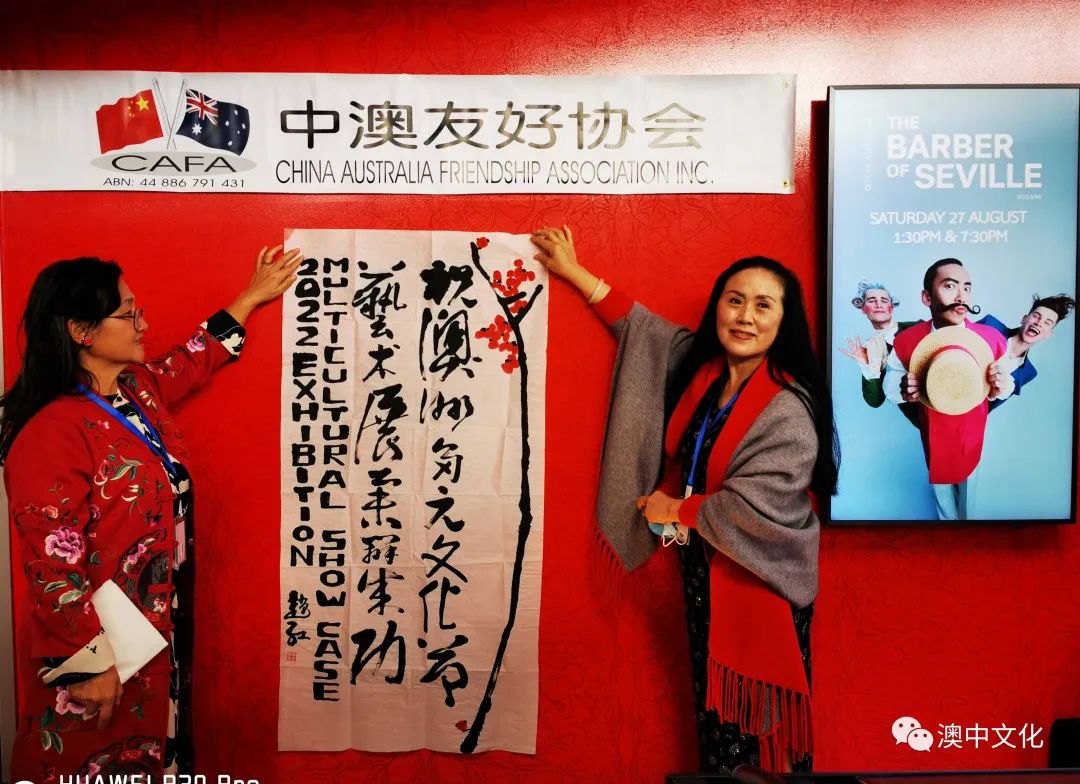 中澳友好协会
CHINA AUSTRALIA FRIENDSHIP ASSOCIATION INC.
CAFA
ABN: 44 886 791 431
祝澳洲多元文化节
藝术展
功
MULTICULTURAL SHOW CASE
2022 EXHIBITION
THE
BARBER
OF SEVILLE
ROSSINI
SATURDAY 27 AUGUST
1:30PM & 7:30PM
澳中文化
HUAWEI P30 Pro